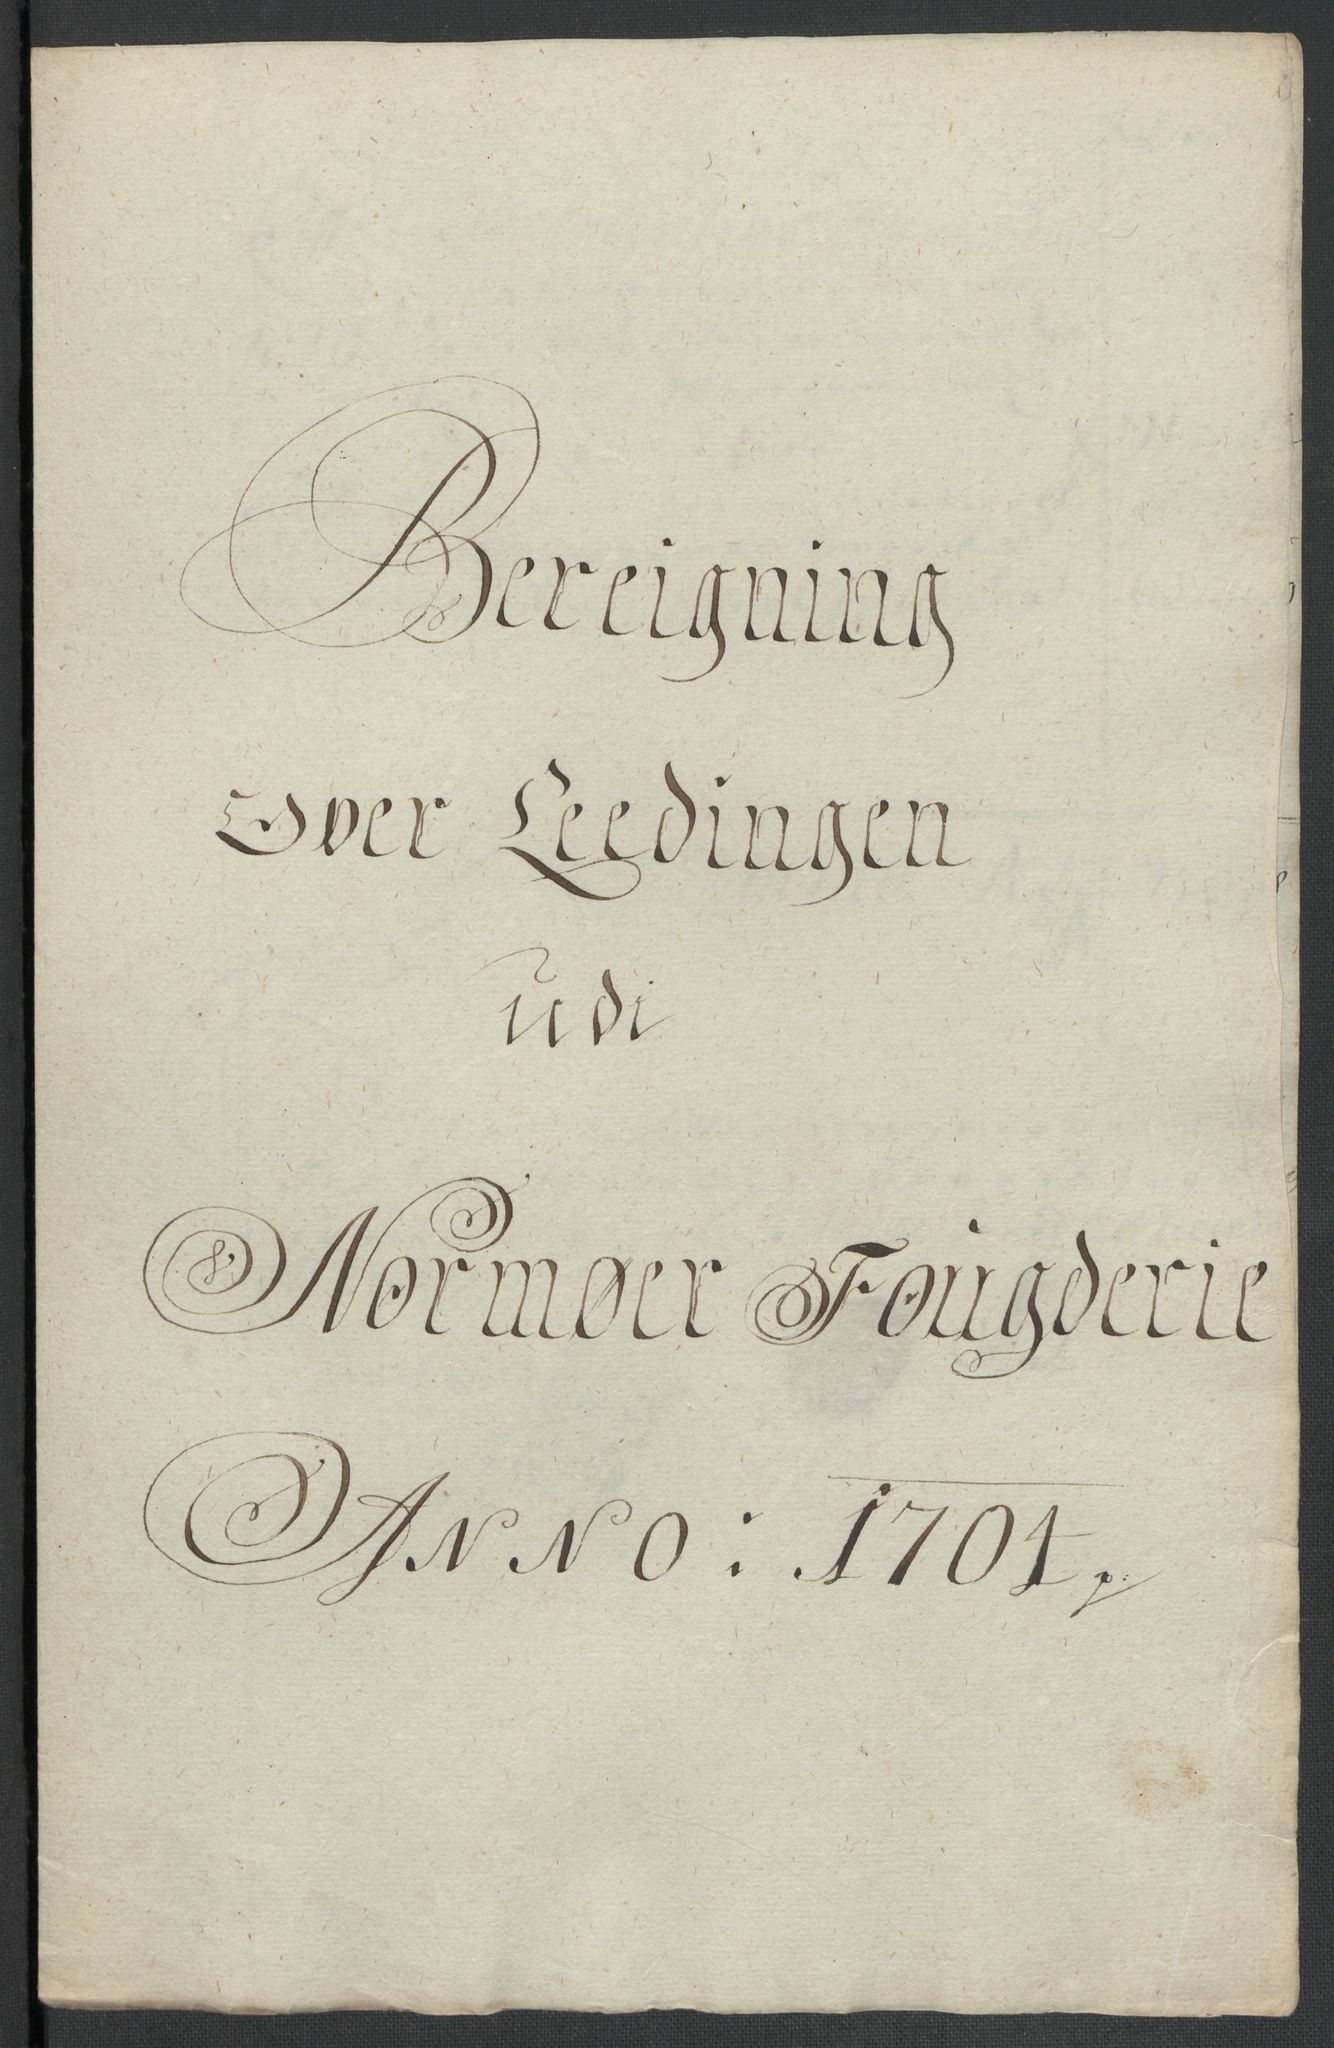 Bereigning
Over Leedingen
udi
Normøer Fougderie
Anno: 1704.